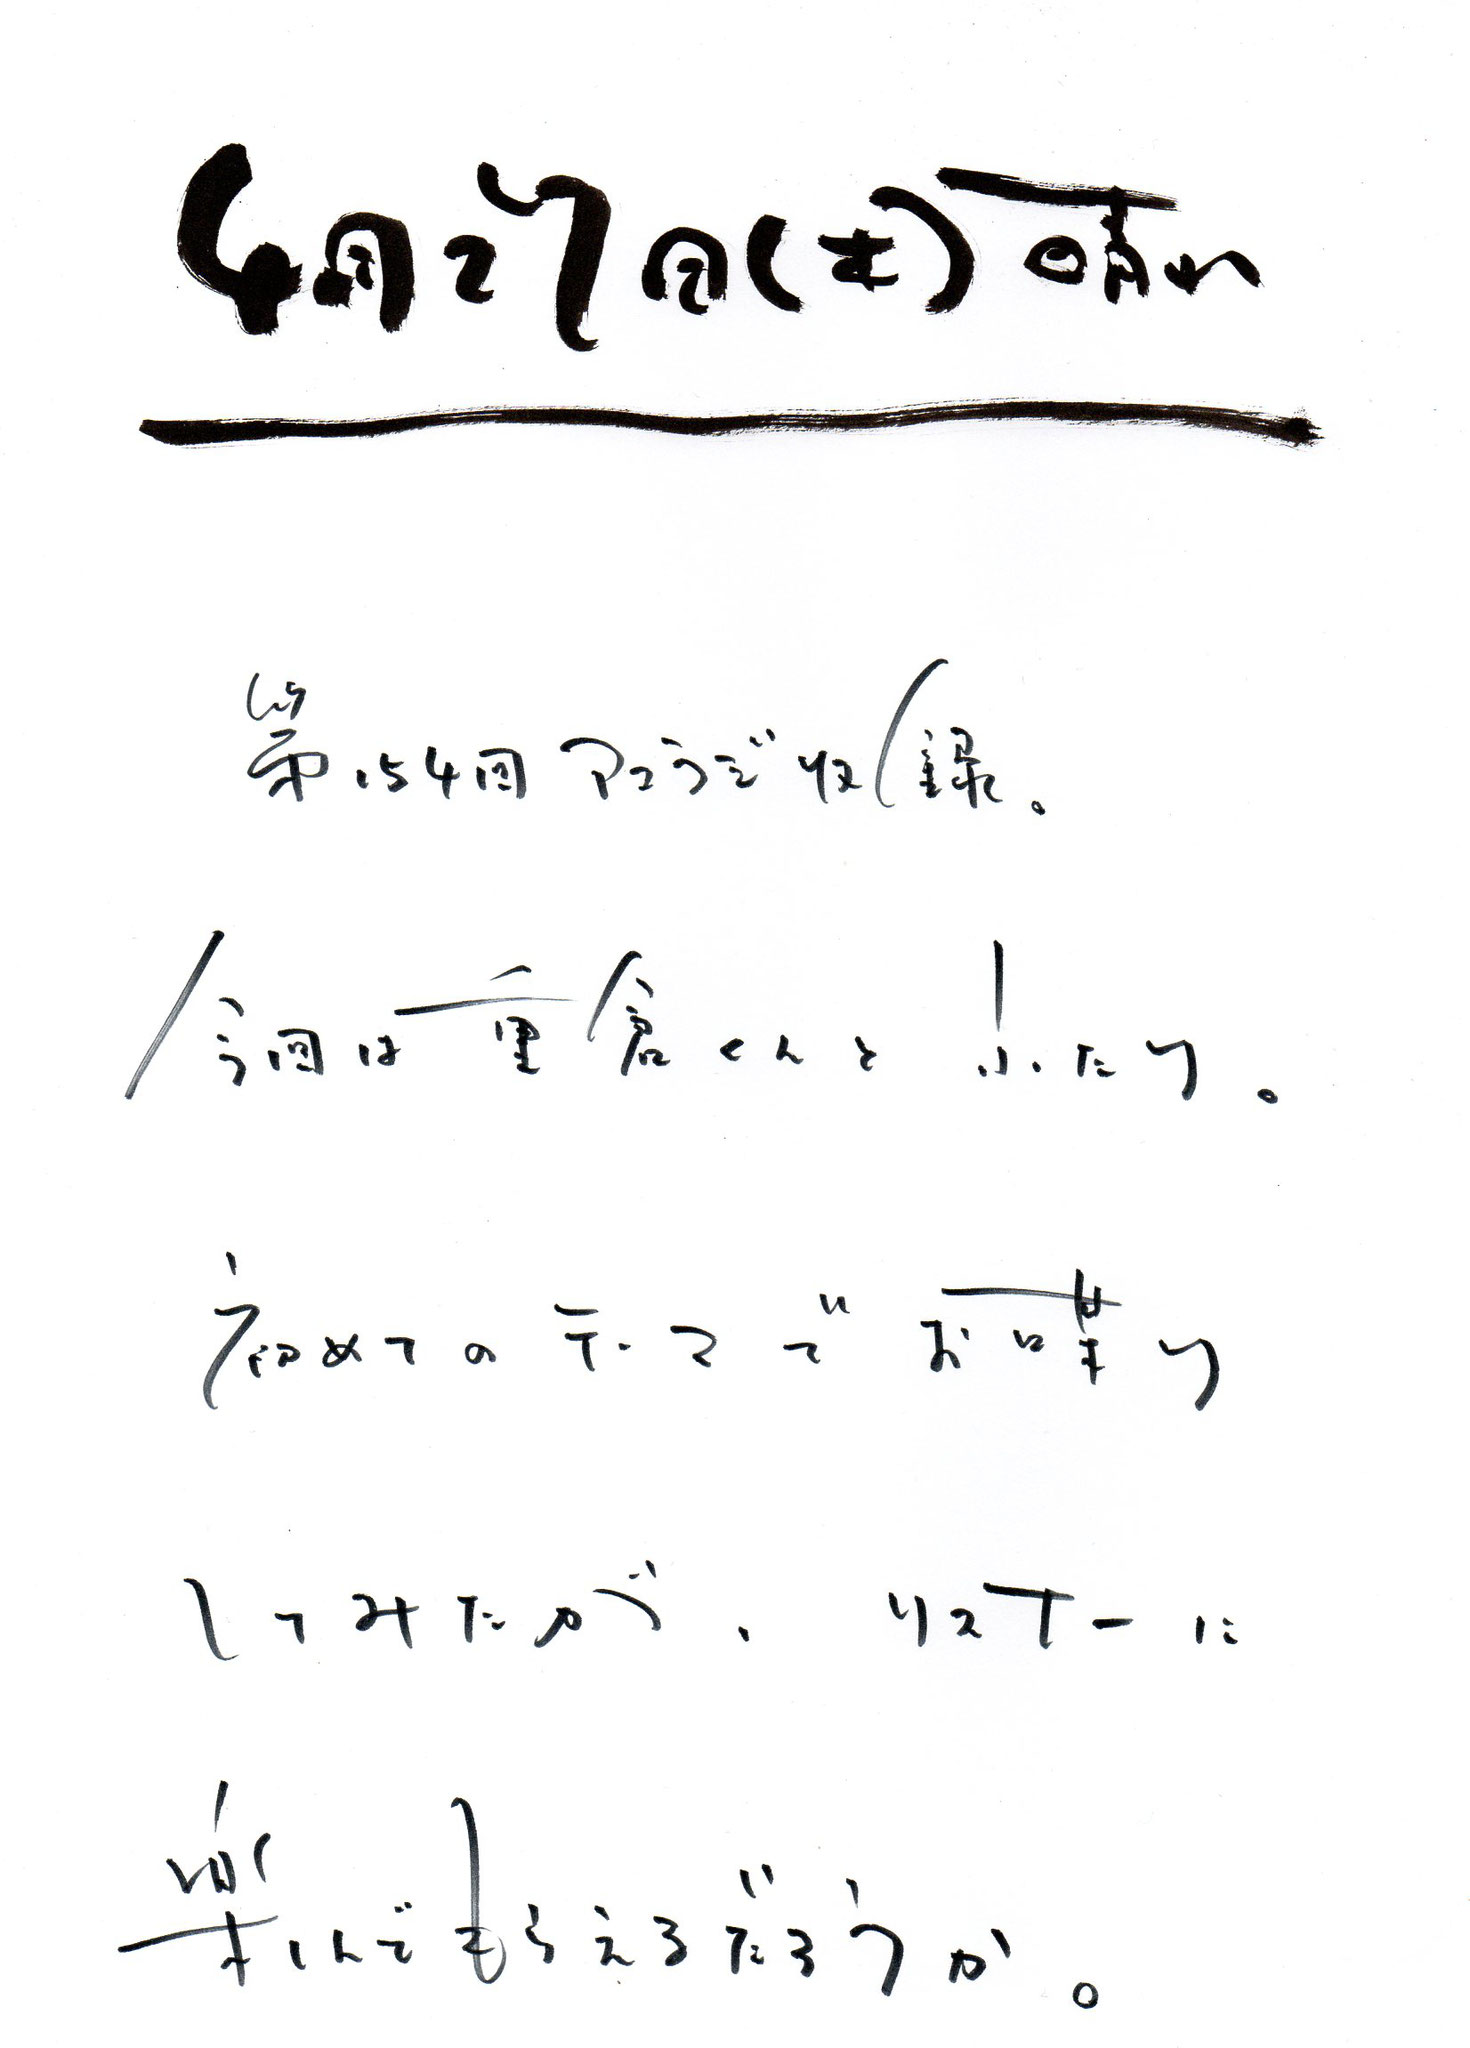 4月27日(木)晴れ
第154回アコラジ収録。
今回は重倉くんとふたり。
初めてのテーマでお喋り
してみたが、リスナーに
楽しんでもらえるだろうか。